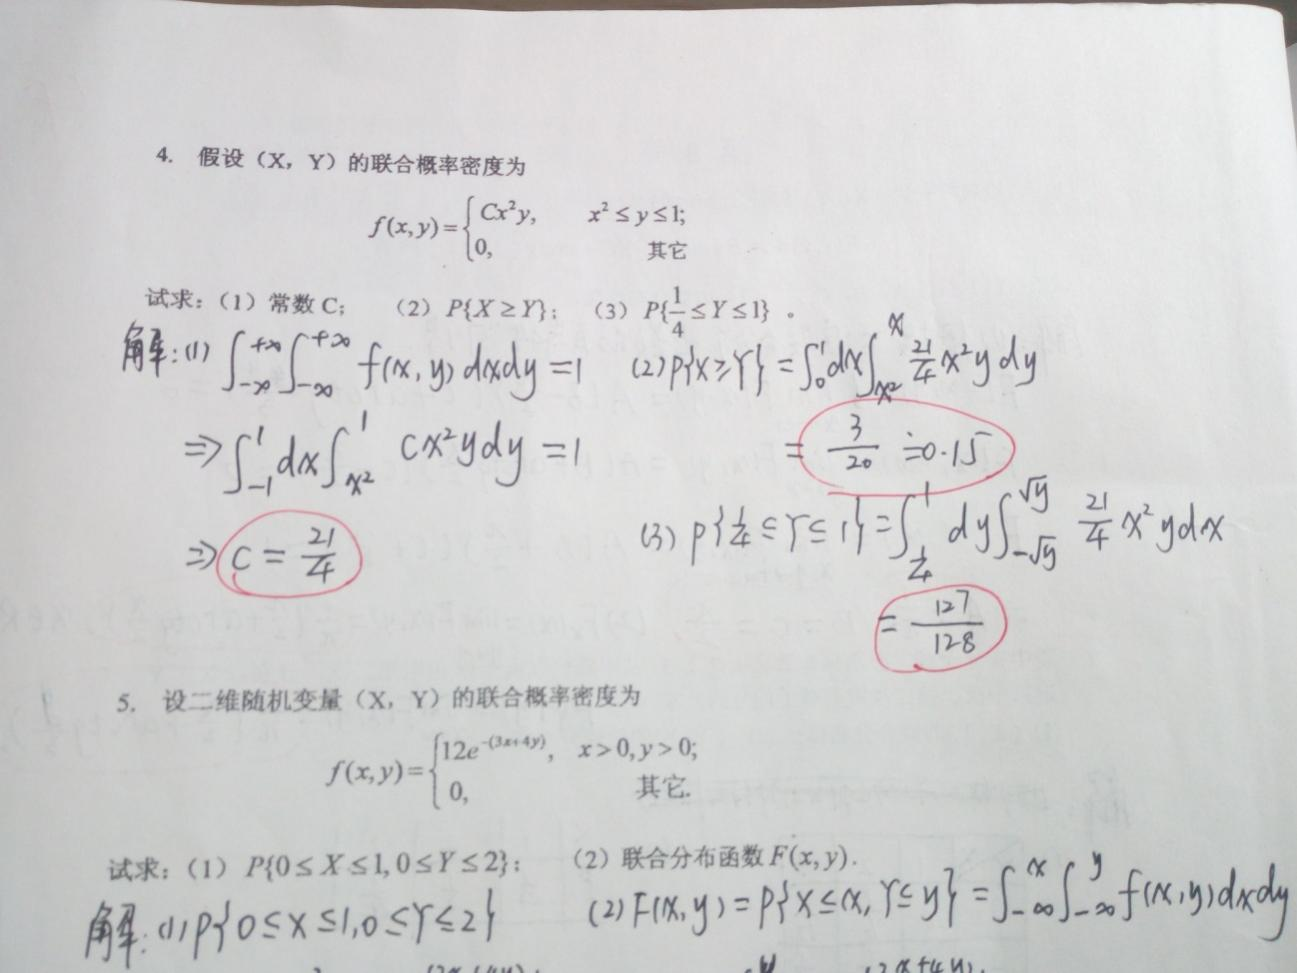 4. 假设（X，Y）的联合概率密度为
f(x,y)={Cx²y, x²≤y≤1;
0, 其它
试求：（1）常数 C； （2） P{X≥Y}； （3） P{1/4≤Y≤1} 。
解：(1) ∫_{-∞}^{+∞}∫_{-∞}^{+∞} f(x,y) dxdy =1
⇒ ∫_{-1}^{1} dx∫_{x²}^{1} cx²ydy =1
⇒ C = 21/4
(2) P{X≥Y} = ∫_0^1 dx∫_{x²}^{x} 21/4 x²y dy
= 3/20 ≐0.15
(3) P{1/4≤Y≤1}=∫_{1/4}^{1} dy∫_{-√y}^{√y} 21/4 x²ydx
= 127/128
5. 设二维随机变量（X，Y）的联合概率密度为
f(x,y)={12e^{-(3x+4y)}, x>0,y>0;
0, 其它.
试求：（1） P{0≤X≤1,0≤Y≤2}； （2）联合分布函数 F(x,y).
解：(1) P{0≤X≤1,0≤Y≤2}
(2) F(x,y) = P{X≤x,Y≤y} =∫_{-∞}^{x}∫_{-∞}^{y} f(x,y)dxdy